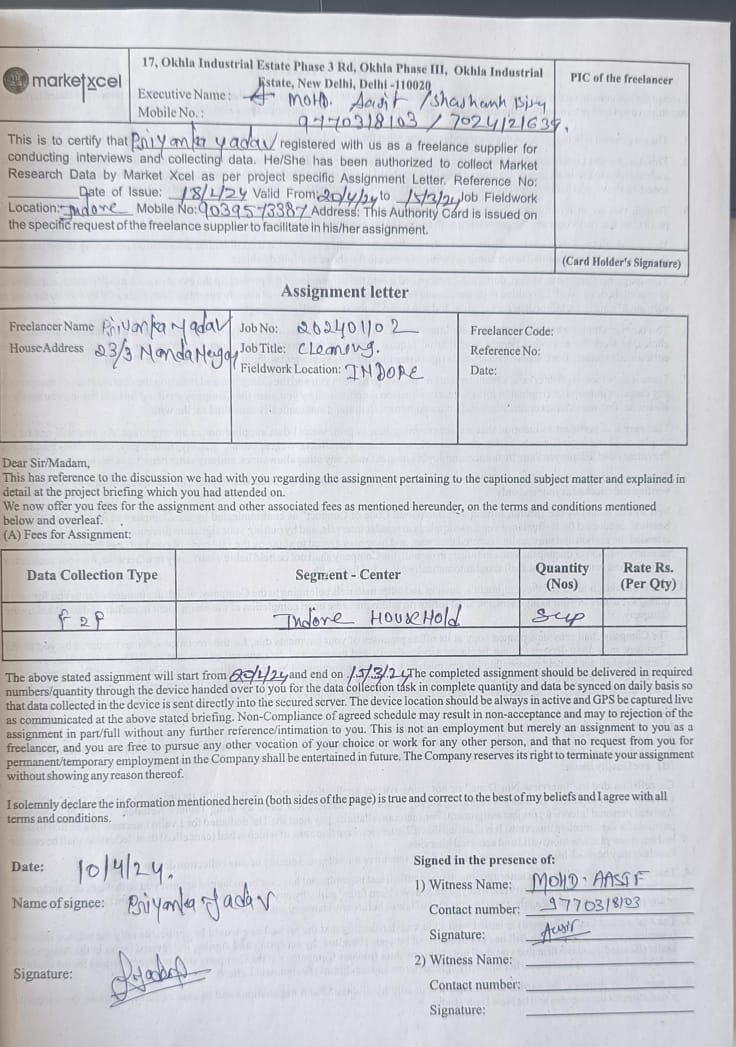 marketxcel
17, Okhla Industrial Estate Phase 3 Rd, Okhla Phase III, Okhla Industrial
Estate, New Delhi, Delhi -110020
Executive Name: MOHD. Aasif / Shashank
Mobile No.: 9770318103 / 7024121639.
PIC of the freelancer
This is to certify that Priyanka yadav registered with us as a freelance supplier for
conducting interviews and collecting data. He/She has been authorized to collect Market
Research Data by Market Xcel as per project specific Assignment Letter. Reference No:
Date of Issue: 18/1/24 Valid From: 20/1/24 to 15/3/24 Job Fieldwork
Location: Indore Mobile No: 9039573387 Address: This Authority Card is issued on
the specific request of the freelance supplier to facilitate in his/her assignment.
(Card Holder's Signature)
Assignment letter
Freelancer Name Priyanka Yadav
House Address 23/3 Nanda Nagar
Job No: 202401102
Job Title: Cleaning.
Fieldwork Location: INDORE
Freelancer Code:
Reference No:
Date:
Dear Sir/Madam,
This has reference to the discussion we had with you regarding the assignment pertaining to the captioned subject matter and explained in
detail at the project briefing which you had attended on.
We now offer you fees for the assignment and other associated fees as mentioned hereunder, on the terms and conditions mentioned
below and overleaf.
(A) Fees for Assignment:
Data Collection Type Segment - Center Quantity (Nos) Rate Rs. (Per Qty)
F2F Indore HOUSEHold
The above stated assignment will start from 20/1/24 and end on 15/3/24 The completed assignment should be delivered in required
numbers/quantity through the device handed over to you for the data collection task in complete quantity and data be synced on daily basis so
that data collected in the device is sent directly into the secured server. The device location should be always in active and GPS be captured live
as communicated at the above stated briefing. Non-Compliance of agreed schedule may result in non-acceptance and may to rejection of the
assignment in part/full without any further reference/intimation to you. This is not an employment but merely an assignment to you as a
freelancer, and you are free to pursue any other vocation of your choice or work for any other person, and that no request from you for
permanent/temporary employment in the Company shall be entertained in future. The Company reserves its right to terminate your assignment
without showing any reason thereof.
I solemnly declare the information mentioned herein (both sides of the page) is true and correct to the best of my beliefs and I agree with all
terms and conditions.
Date: 10/4/24.
Name of signee: Priyanka Yadav
Signature:
Signed in the presence of:
1) Witness Name: MOHD. AASIF
Contact number: 9770318103
Signature: Aasif
2) Witness Name:
Contact number:
Signature: